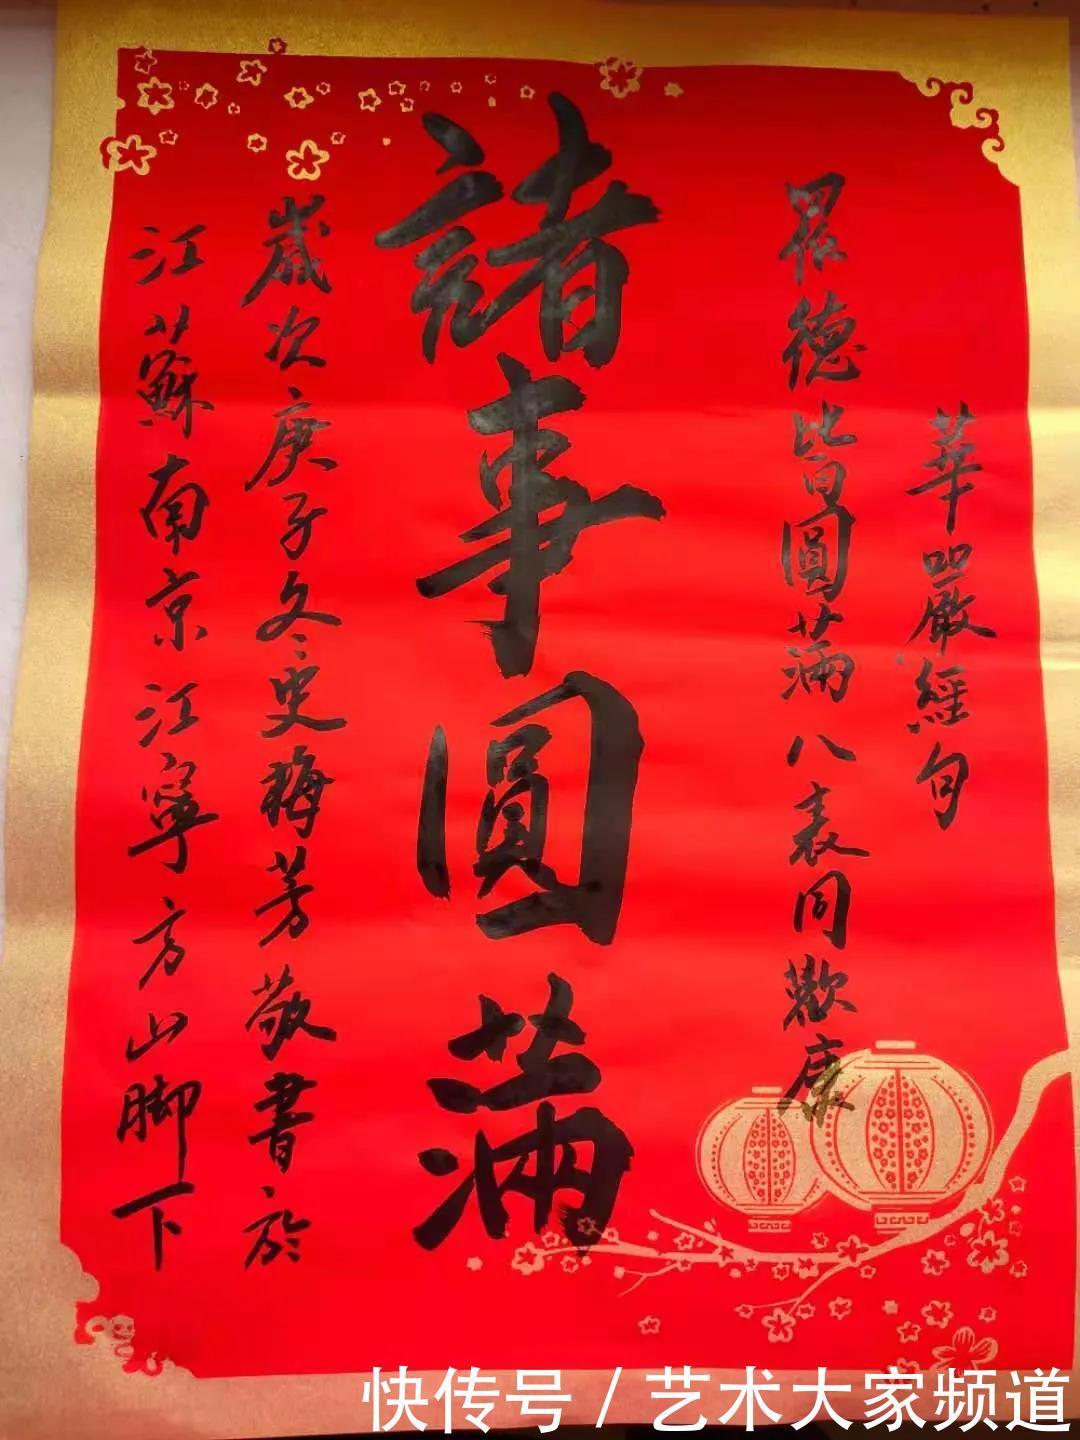 華嚴經句
眾德皆圓滿八表同歡康
諸事圓滿
歲次庚子冬史梅芳敬書於
江蘇南京江寧方山脚下
快传号/艺术大家频道